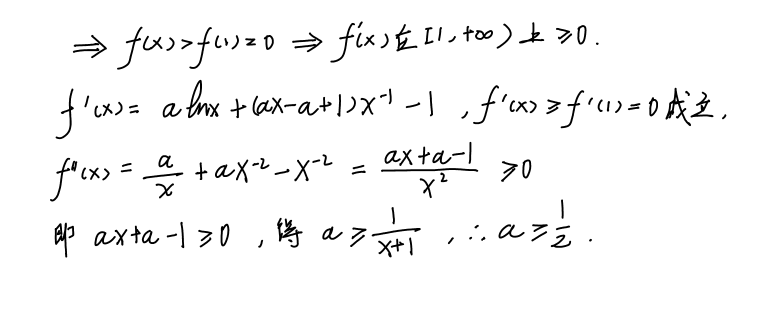 ⇒ f(x) > f(1) = 0 ⇒ f'(x) 在 [1, +∞) 上 ≥ 0.
f'(x) = a lnx + (ax-a+1)x⁻¹ - 1 , f'(x) ≥ f'(1) = 0 成立,
f''(x) = a/x + ax⁻² - x⁻² = (ax+a-1)/x² ≥ 0
即 ax+a-1 ≥ 0 , 得 a ≥ 1/(x+1) , ∴ a ≥ 1/2 .